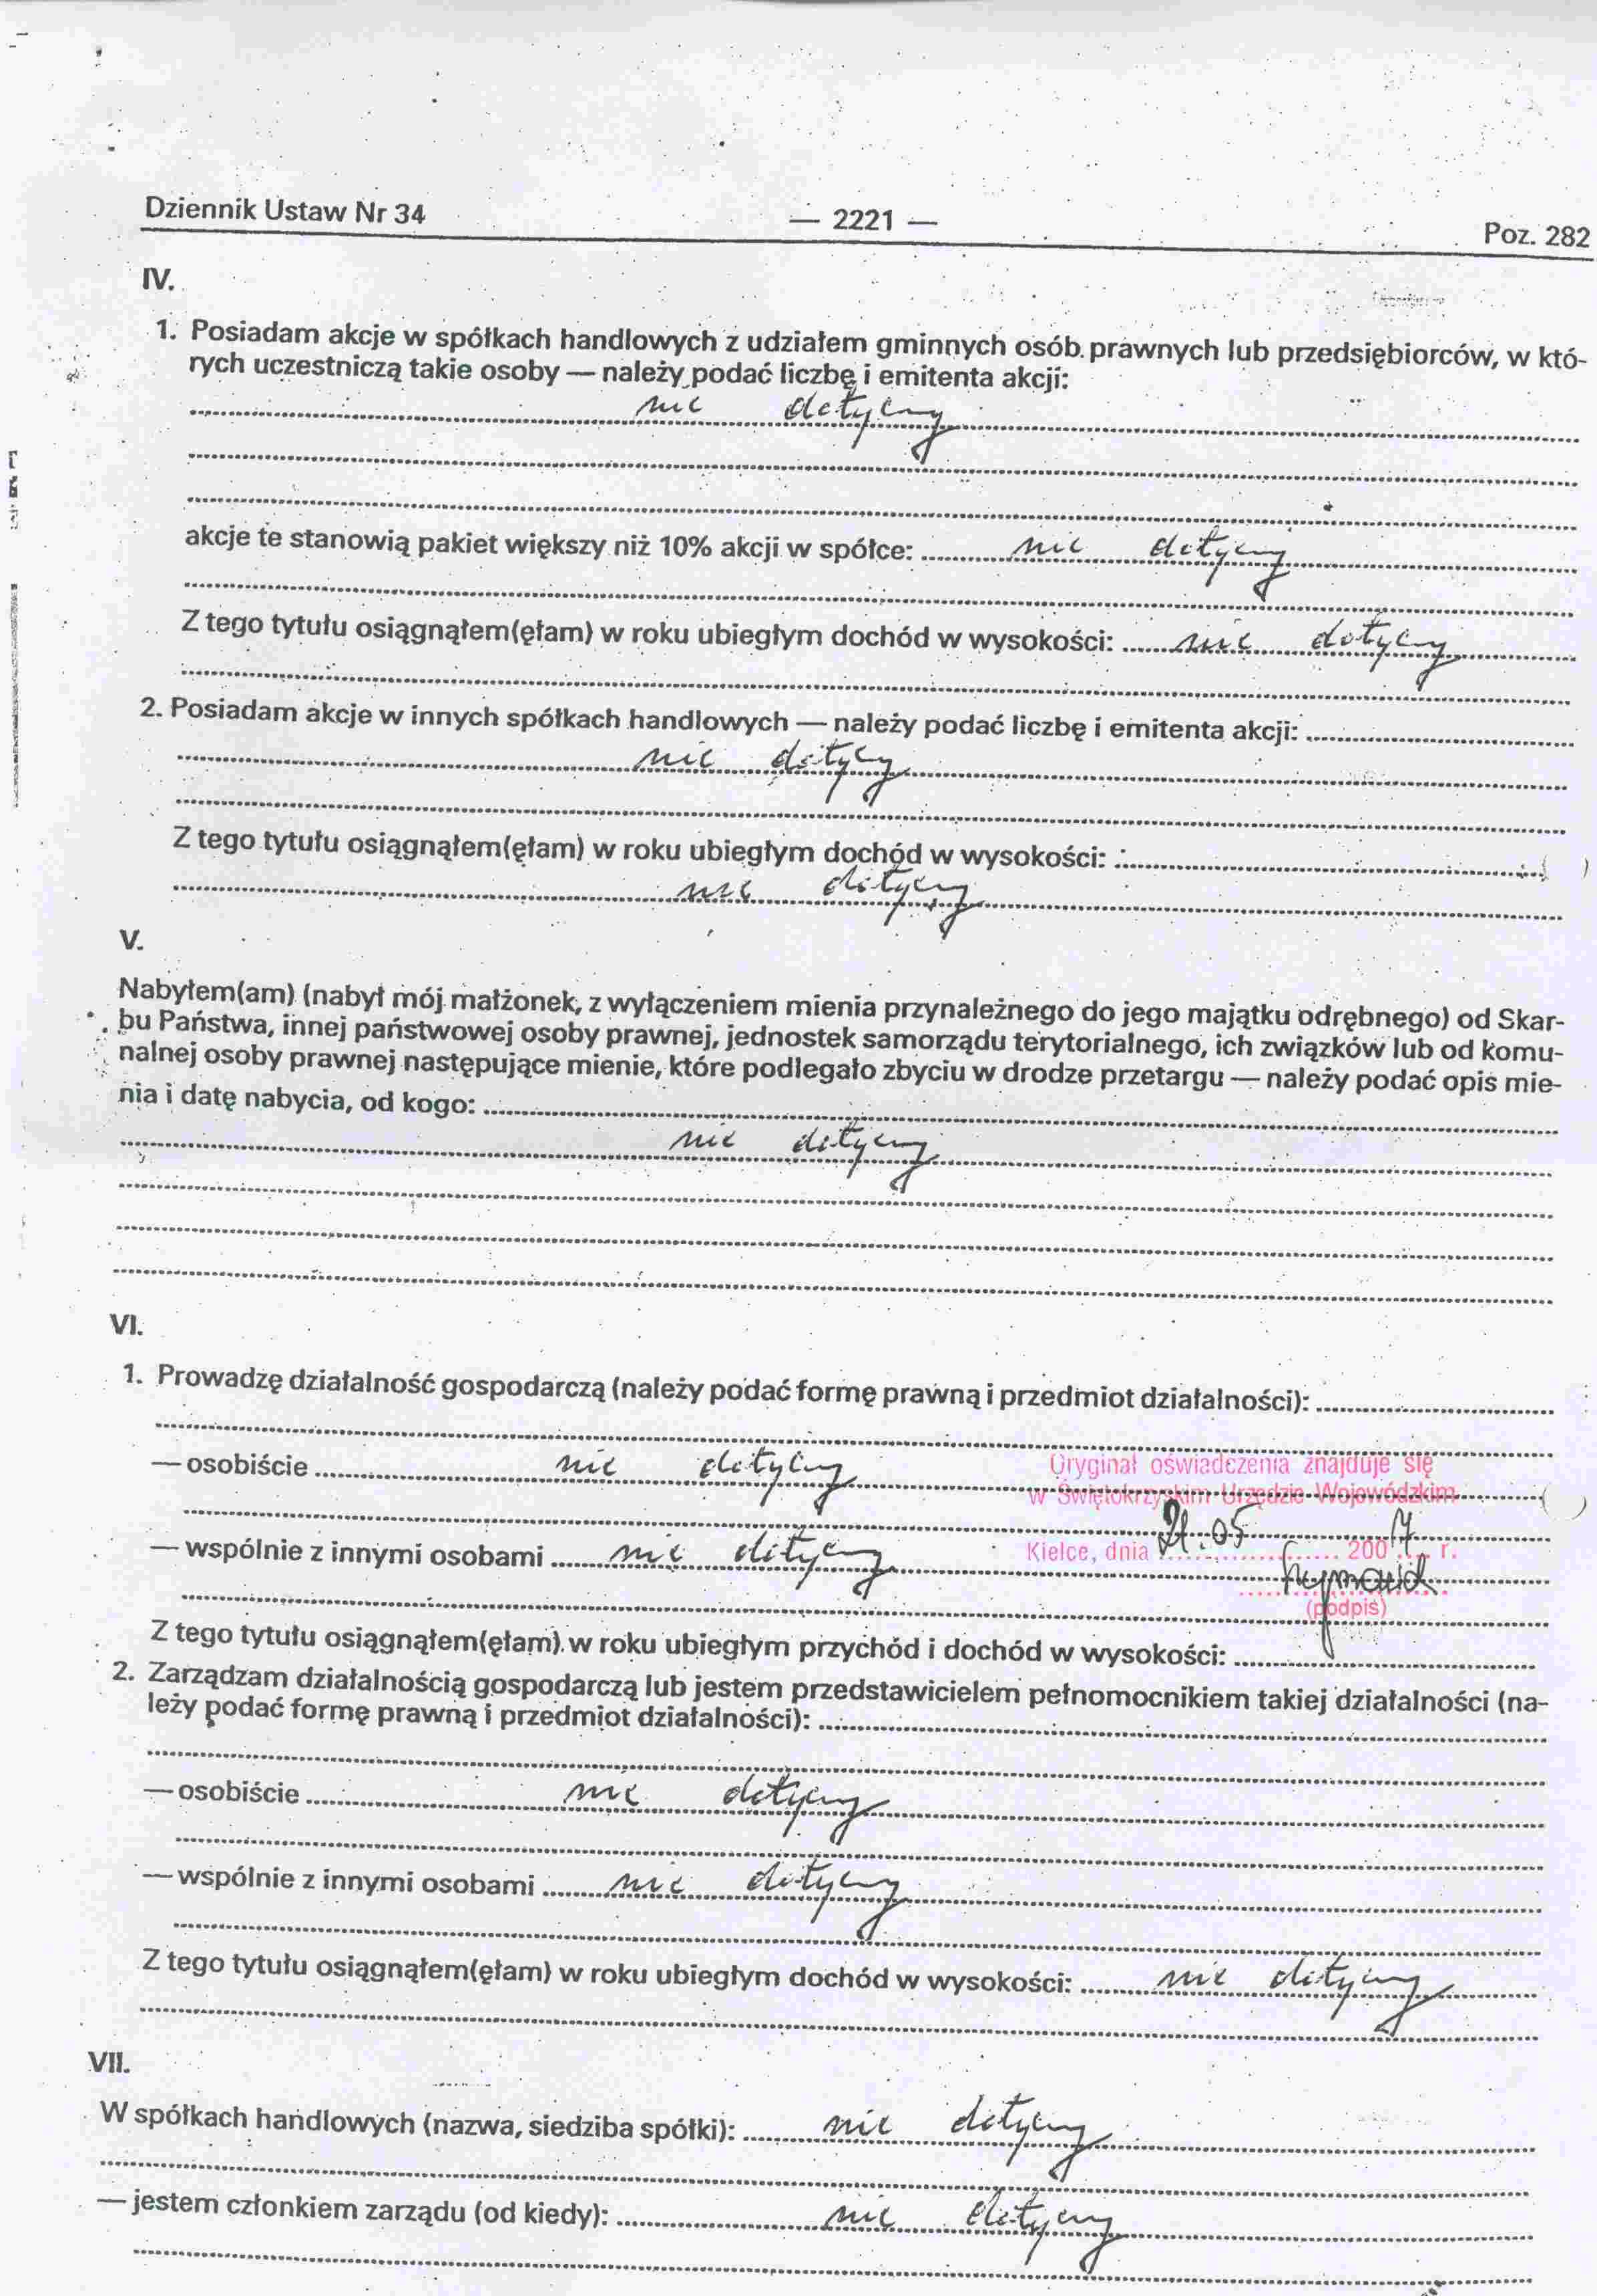 Dziennik Ustaw Nr 34 — 2221 — Poz. 282
IV.
1. Posiadam akcje w spółkach handlowych z udziałem gminnych osób prawnych lub przedsiębiorców, w któ-
rych uczestniczą takie osoby — należy podać liczbę i emitenta akcji:
nie dotyczy
akcje te stanowią pakiet większy niż 10% akcji w spółce: nie dotyczy
Z tego tytułu osiągnąłem(ęłam) w roku ubiegłym dochód w wysokości: nie dotyczy
2. Posiadam akcje w innych spółkach handlowych — należy podać liczbę i emitenta akcji:
nie dotyczy
Z tego tytułu osiągnąłem(ęłam) w roku ubiegłym dochód w wysokości:
nie dotyczy
V.
Nabyłem(am) (nabył mój małżonek, z wyłączeniem mienia przynależnego do jego majątku odrębnego) od Skar-
bu Państwa, innej państwowej osoby prawnej, jednostek samorządu terytorialnego, ich związków lub od komu-
nalnej osoby prawnej następujące mienie, które podlegało zbyciu w drodze przetargu — należy podać opis mie-
nia i datę nabycia, od kogo:
nie dotyczy
VI.
1. Prowadzę działalność gospodarczą (należy podać formę prawną i przedmiot działalności):
— osobiście nie dotyczy
Oryginał oświadczenia znajduje się
w Świętokrzyskim Urzędzie Wojewódzkim
— wspólnie z innymi osobami nie dotyczy
Kielce, dnia 21.05 2007 r.
(podpis)
Z tego tytułu osiągnąłem(ęłam) w roku ubiegłym przychód i dochód w wysokości:
2. Zarządzam działalnością gospodarczą lub jestem przedstawicielem pełnomocnikiem takiej działalności (na-
leży podać formę prawną i przedmiot działalności):
— osobiście nie dotyczy
— wspólnie z innymi osobami nie dotyczy
Z tego tytułu osiągnąłem(ęłam) w roku ubiegłym dochód w wysokości: nie dotyczy
VII.
W spółkach handlowych (nazwa, siedziba spółki): nie dotyczy
— jestem członkiem zarządu (od kiedy): nie dotyczy